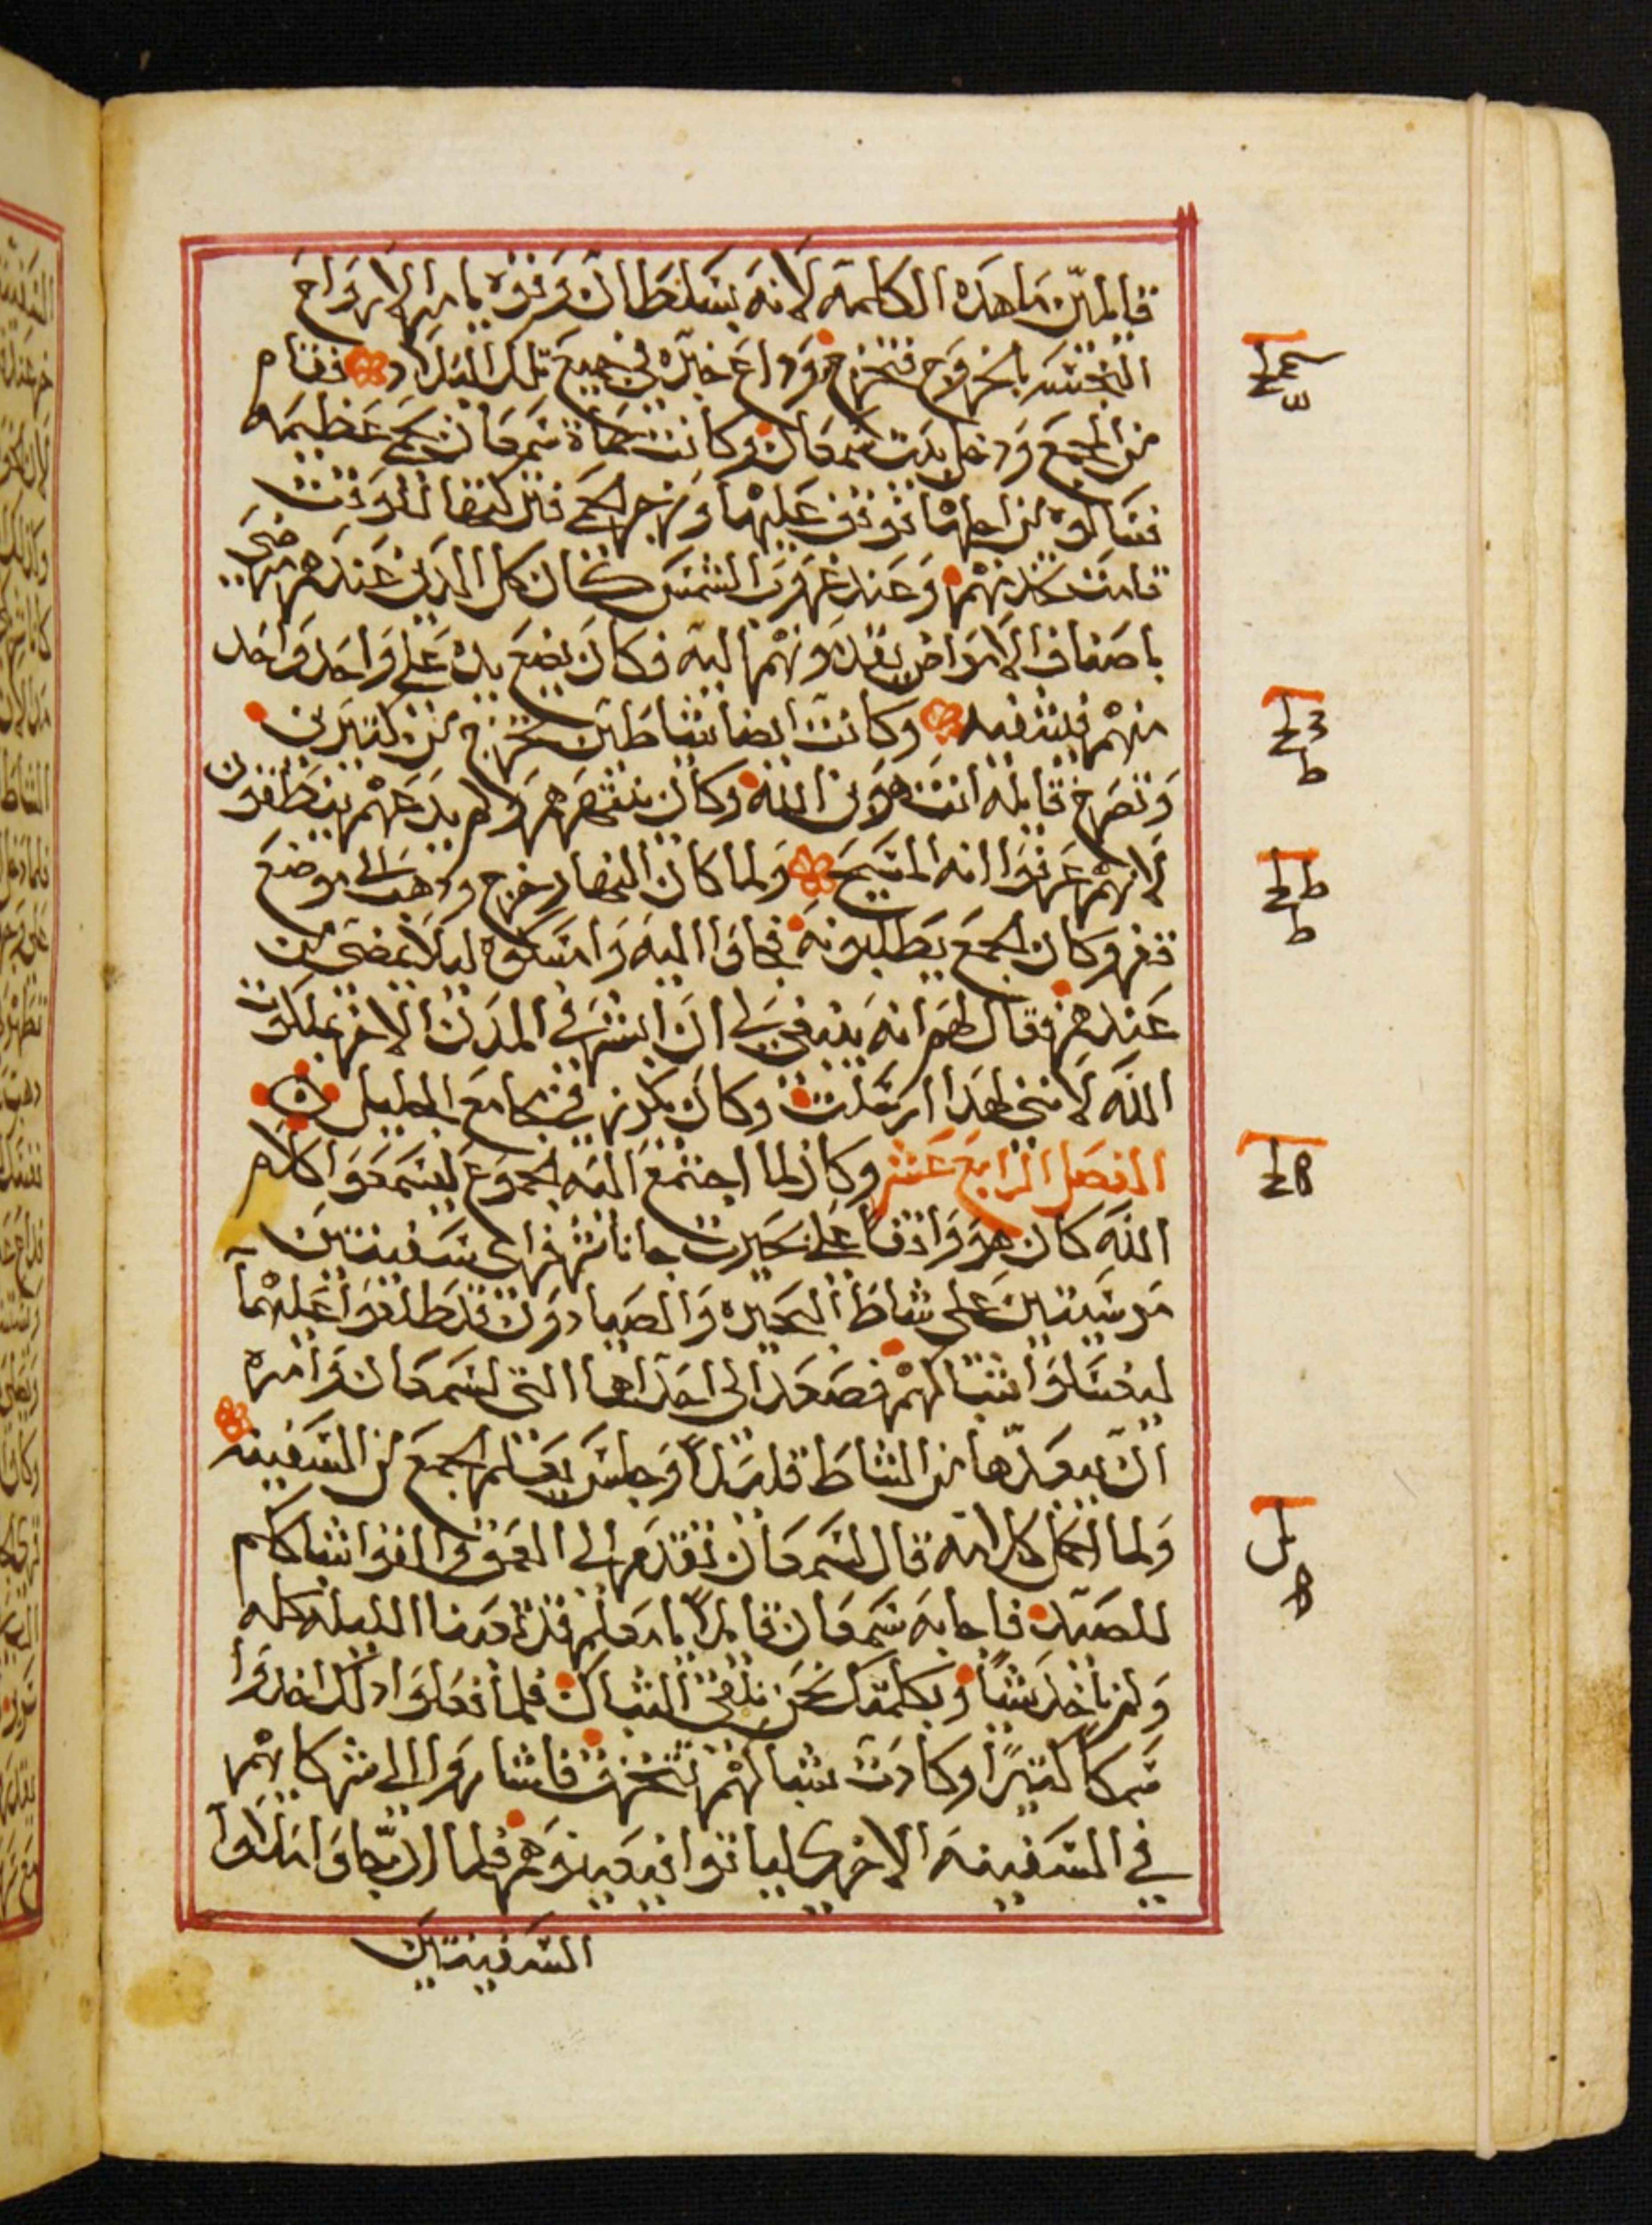 قايلين ما هذه الكلمة لانه بسلطان وقوة يامر الارواح
النجسه بالخروج فتخرج وداع خبره في جميع تلك البلاد فقام
من المجمع ودخل بيت سمعان وكانت حماة سمعان بحمى عظيمه
فسالوه من اجلها فوقف عليها وزجر الحمى فتركتها للوقت
قامت تخدمهم وعند غروب الشمس كان كل الدين عندهم مرضى
باصناف الامراض يقدمونهم اليه فكان يضع يده على واحد واحد
منهم فيشفيه وكانت ايضا شياطين تخرج من كتيرين
وتصرخ قايله انت هو بن الله وكان ينتهرهم ولم يدعهم ينطقون
لانهم عرفوا انه المسيح ولما كان النهار خرج ودهب الى موضع
قفر وكان الجمع يطلبونه فجاوا اليه وامسكوه ليلا يمضي من
عندهم فقال لهم انه ينبغي لي ان ابشر في المدن الاخر بملكوت
الله لانني لهدا ارسلت وكان يكرز في مجامع الجليل
الفصل الرابع عشر وكان لما اجتمع اليه الجموع ليسمعوا كلام
الله كان هو واقفا على بحيرت جاناشر فراى سفينتين
مرسيتين على شاطى البحيره والصيادون قد طلعوا عليهما
ليغسلوا شباكهم فصعد الى احداهما التي لسمعان وامره
ان يبعدها من الشاط قليلا وجلس يعلم الجمع من السفينه
ولما اكمل كلامه قال لسمعان تقدم الى العمق والقوا شباككم
للصيد فاجابه سمعان قايلا يامعلم قد تعبنا الليله كله
ولم ناخد شيا وبكلمتك نحن نلقي الشباك فلما فعلوا دلك اخدوا
سمكا كتيرا وكادت شباكهم تتخرق فاشاروا الى شركايهم
في السفينه الاخرى لياتوا فيعينوهم فلما ان جاوا ملاوا
السفينتين